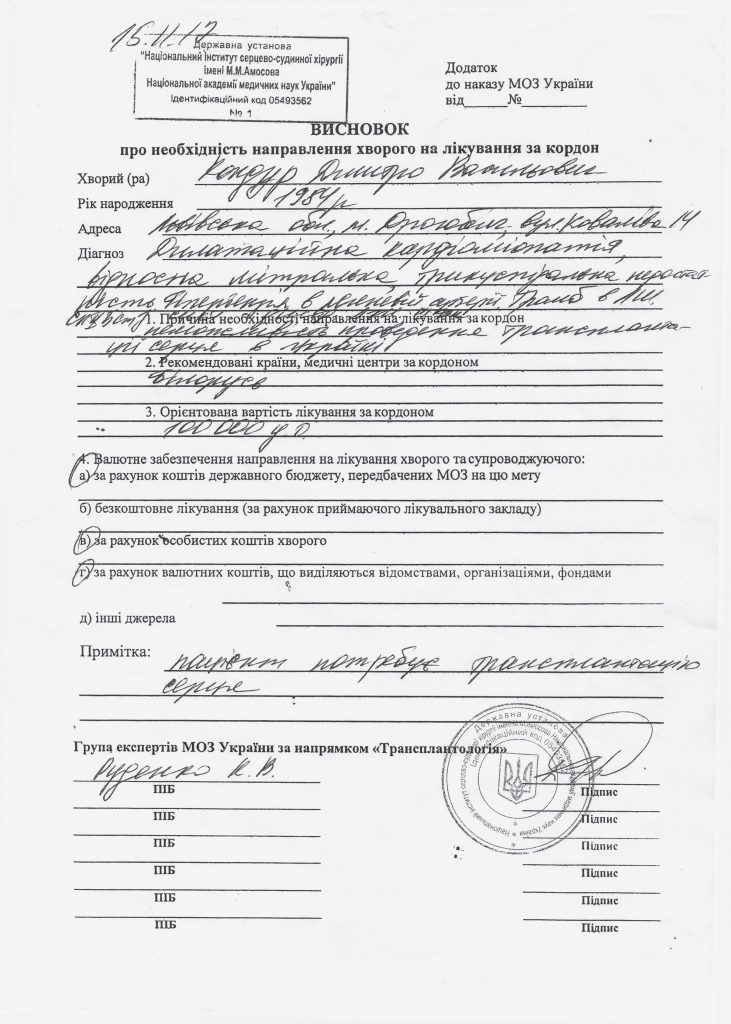 15.11.17
Державна установа
"Національний Інститут серцево-судинної хірургії
імені М.М.Амосова
Національної академії медичних наук України"
Ідентифікаційний код 05493562
№ 1
Додаток
до наказу МОЗ України
від______№_________
ВИСНОВОК
про необхідність направлення хворого на лікування за кордон
Хворий (ра) Кондур Дмитро Васильович
Рік народження 1984 р
Адреса Львівська обл., м. Дрогобич, вул. Коваліва 14
Діагноз Дилатаційна кардіоміопатія,
відносна мітральна, трикуспідальна недостат
ність в легеневій артерії Тромб в ЛШ.
1. Причина необхідності направлення на лікування за кордон
неможливість проведення транспланта-
ції серця в Україні
2. Рекомендовані країни, медичні центри за кордоном
Білорусь
3. Орієнтована вартість лікування за кордоном
100 000 у.о.
4. Валютне забезпечення направлення на лікування хворого та супроводжуючого:
а) за рахунок коштів державного бюджету, передбачених МОЗ на цю мету
б) безкоштовне лікування (за рахунок приймаючого лікувального закладу)
в) за рахунок особистих коштів хворого
г) за рахунок валютних коштів, що виділяються відомствами, організаціями, фондами
д) інші джерела
Примітка: пацієнт потребує трансплантацію
серця
Група експертів МОЗ України за напрямком «Трансплантологія»
Руденко К. В.
ПІБ Підпис
ПІБ Підпис
ПІБ Підпис
ПІБ Підпис
ПІБ Підпис
ПІБ Підпис